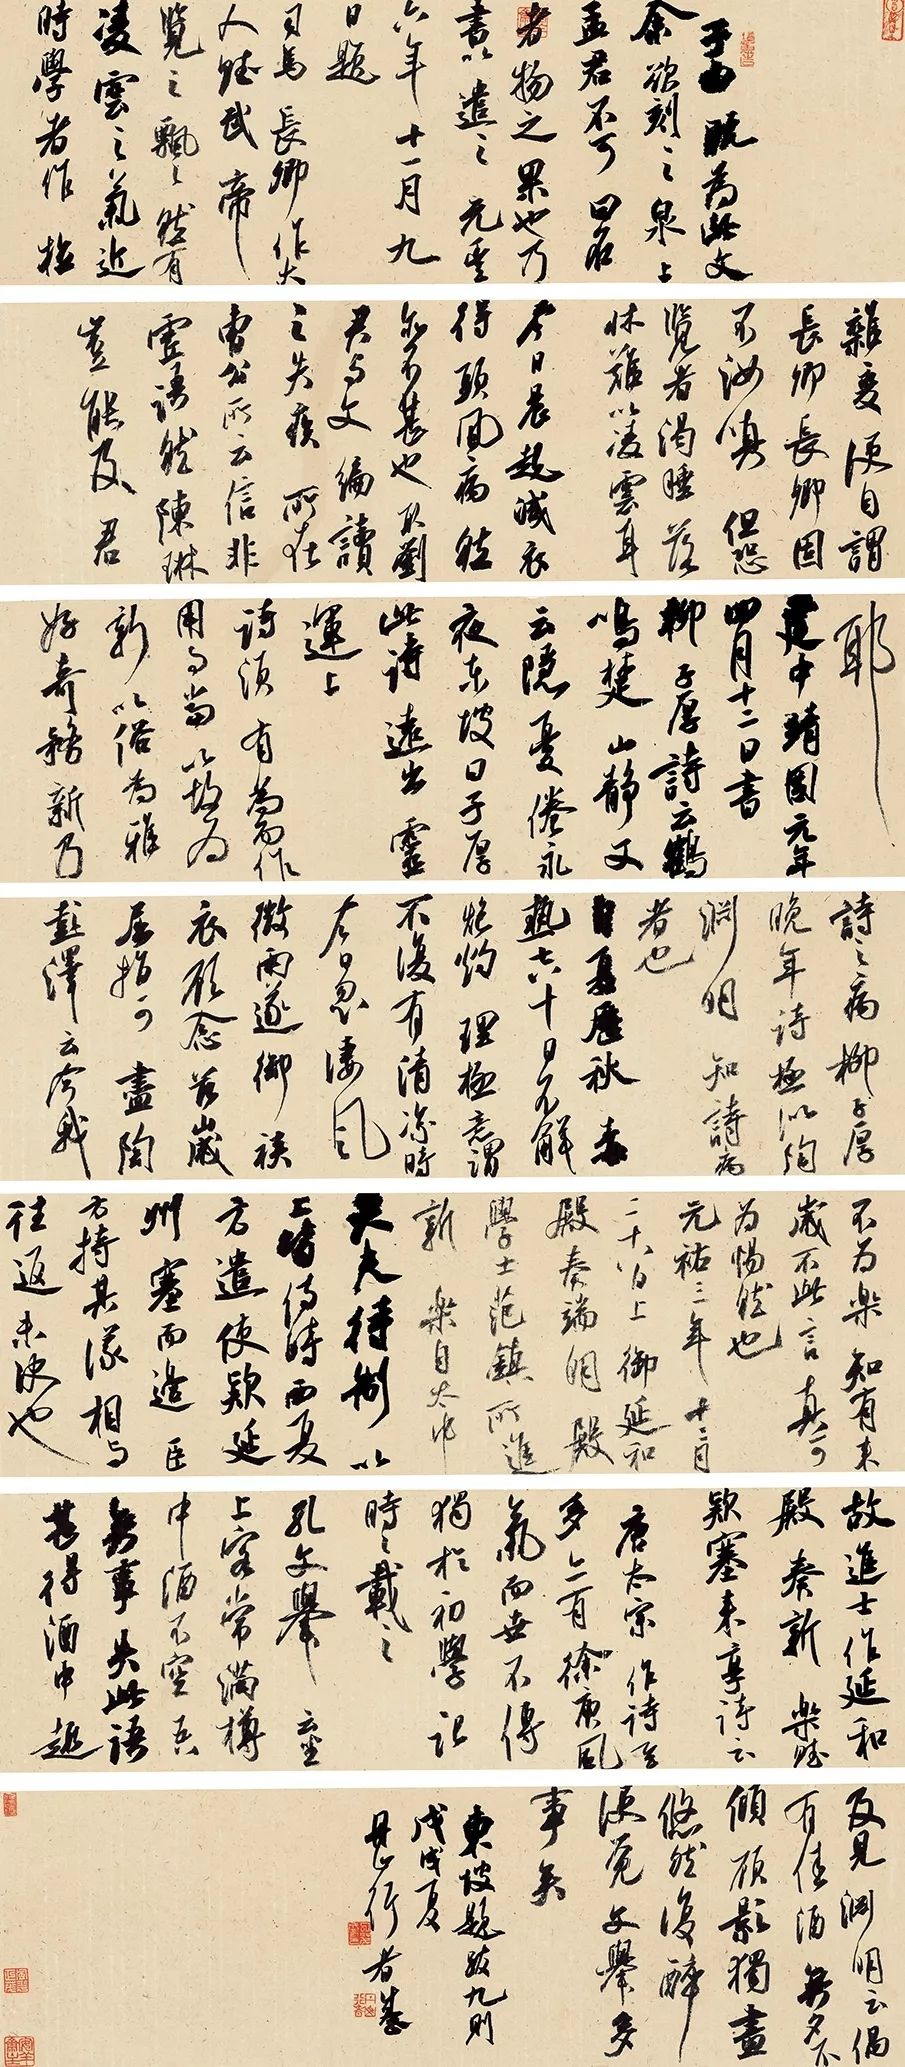 子由既為此文
余欲刻之泉上
孟君不可曰名
者物之果也乃
書以遺之元豐
六年十一月九
日題
司馬長卿作大
人賦武帝
覽之飄飄然有
凌雲之氣近
時學者作拉
雜變便自謂
長卿長卿固
不汝嗔但恐
覽者渴睡落
床難以凌雲耳
今日晨起減衣
得頭風病然
亦不甚也取劉
君與文編讀
之失疾所在
曹公所云信非
虛語然陳琳
豈能及君
耶
建中靖國元年
四月十二日書
柳子厚詩云鶴
鳴楚山靜又
云隱憂倦永
夜東坡曰子厚
此詩遠出靈
運上
詩須有為而作
用事當以故為
新以俗為雅
好奇務新乃
詩之病柳子厚
晚年詩極似陶
淵明知詩病
者也
自夏歷秋毒
熱七八十日不解
炮灼理極意謂
不復有清涼時
今日忽淒風
微雨遂御裌
衣顧念茲歲
屈指可盡陶
彭澤云今我
不為樂知有來
歲不此言真可
為惕然也
元祐三年十二月
二十八日上御延和
殿奏端明殿
學士范鎮所進
新樂自太中
大夫待制以
上皆侍時西夏
方遣使款延
州塞而邊臣
方持其議相與
往返未決也
故進士作延和
殿奏新樂賦
款塞來享詩云
唐太宗作詩至
多亦有徐庾風
氣而世不傳
獨於初學記
時時載之
孔文舉云坐
上客常滿樽
中酒不空吾
無事矣此語
甚得酒中趣
及見淵明云偶
有佳酒無夕不
傾顧影獨盡
悠然復醉
便覺文舉多
事矣
東坡題跋九則
戊戌夏